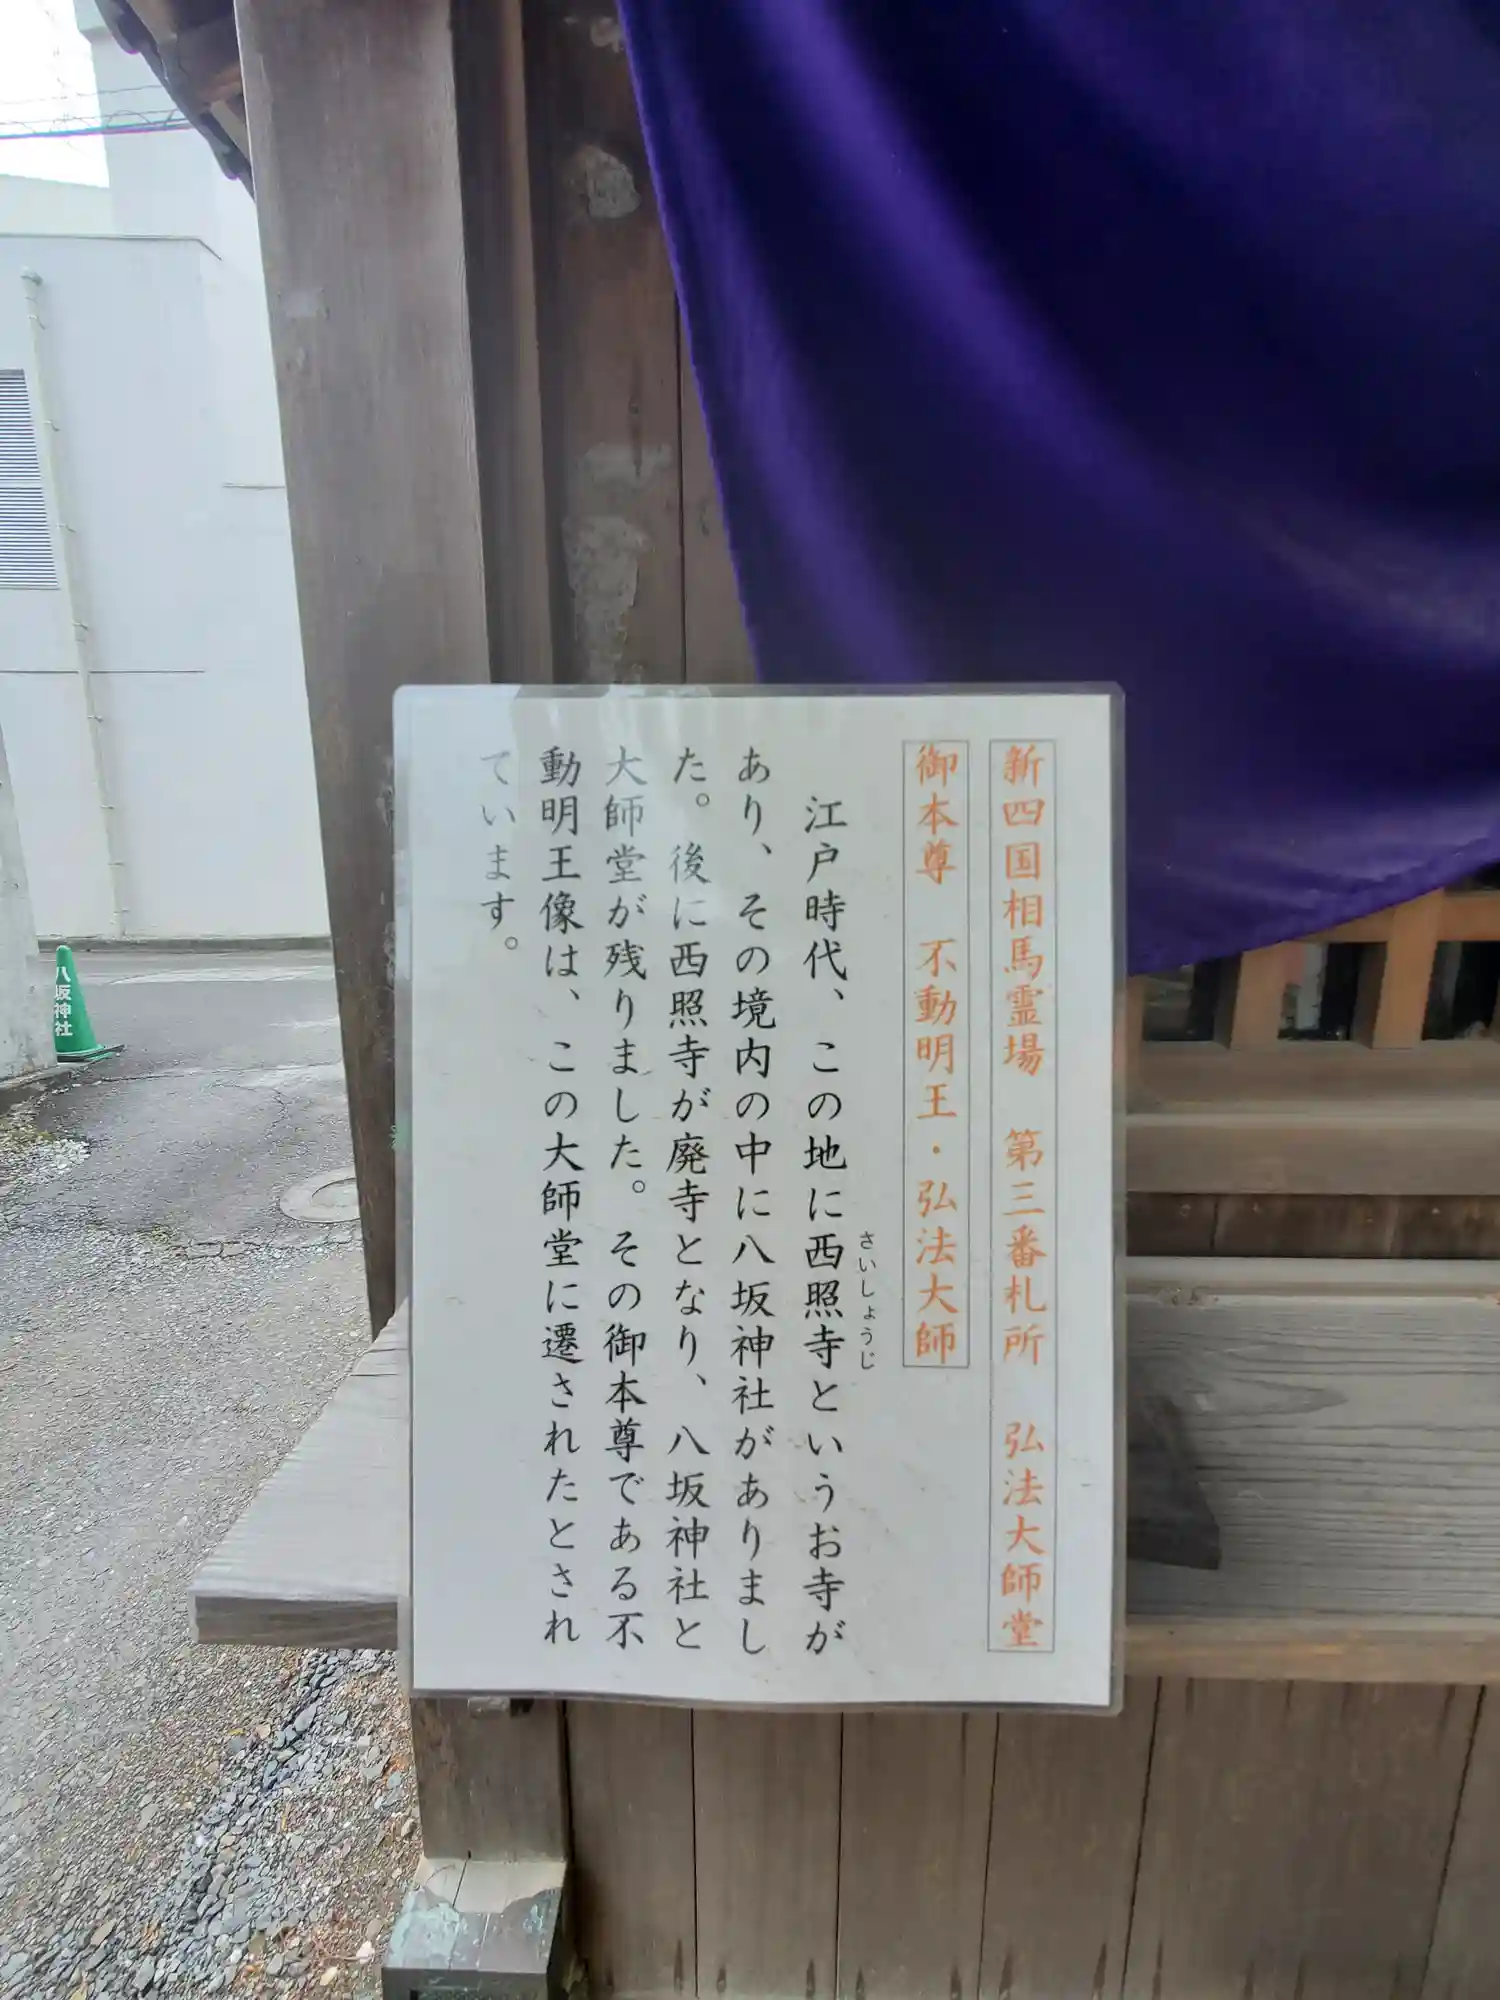 新四国相馬霊場 第三番札所 弘法大師堂
御本尊 不動明王・弘法大師
さいしょうじ
江戸時代、この地に西照寺というお寺が
あり、その境内の中に八坂神社がありまし
た。後に西照寺が廃寺となり、八坂神社と
大師堂が残りました。その御本尊である不
動明王像は、この大師堂に遷されたとされ
ています。
八坂神社